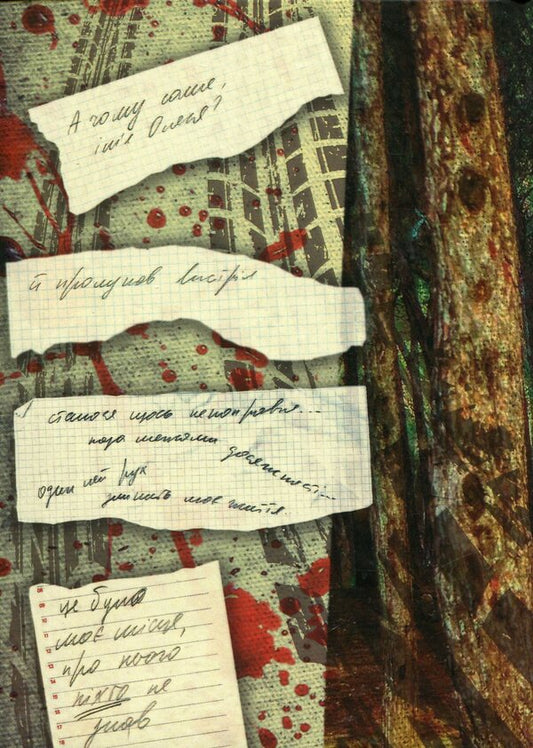 А чому саме,
ім'я Олена?
й пролунав постріл
сталося щось непоправне...
поза межами
досяжності...
один лей рук
змінить моє життя.
це було
моє місце,
про нього
ніхто не
знав